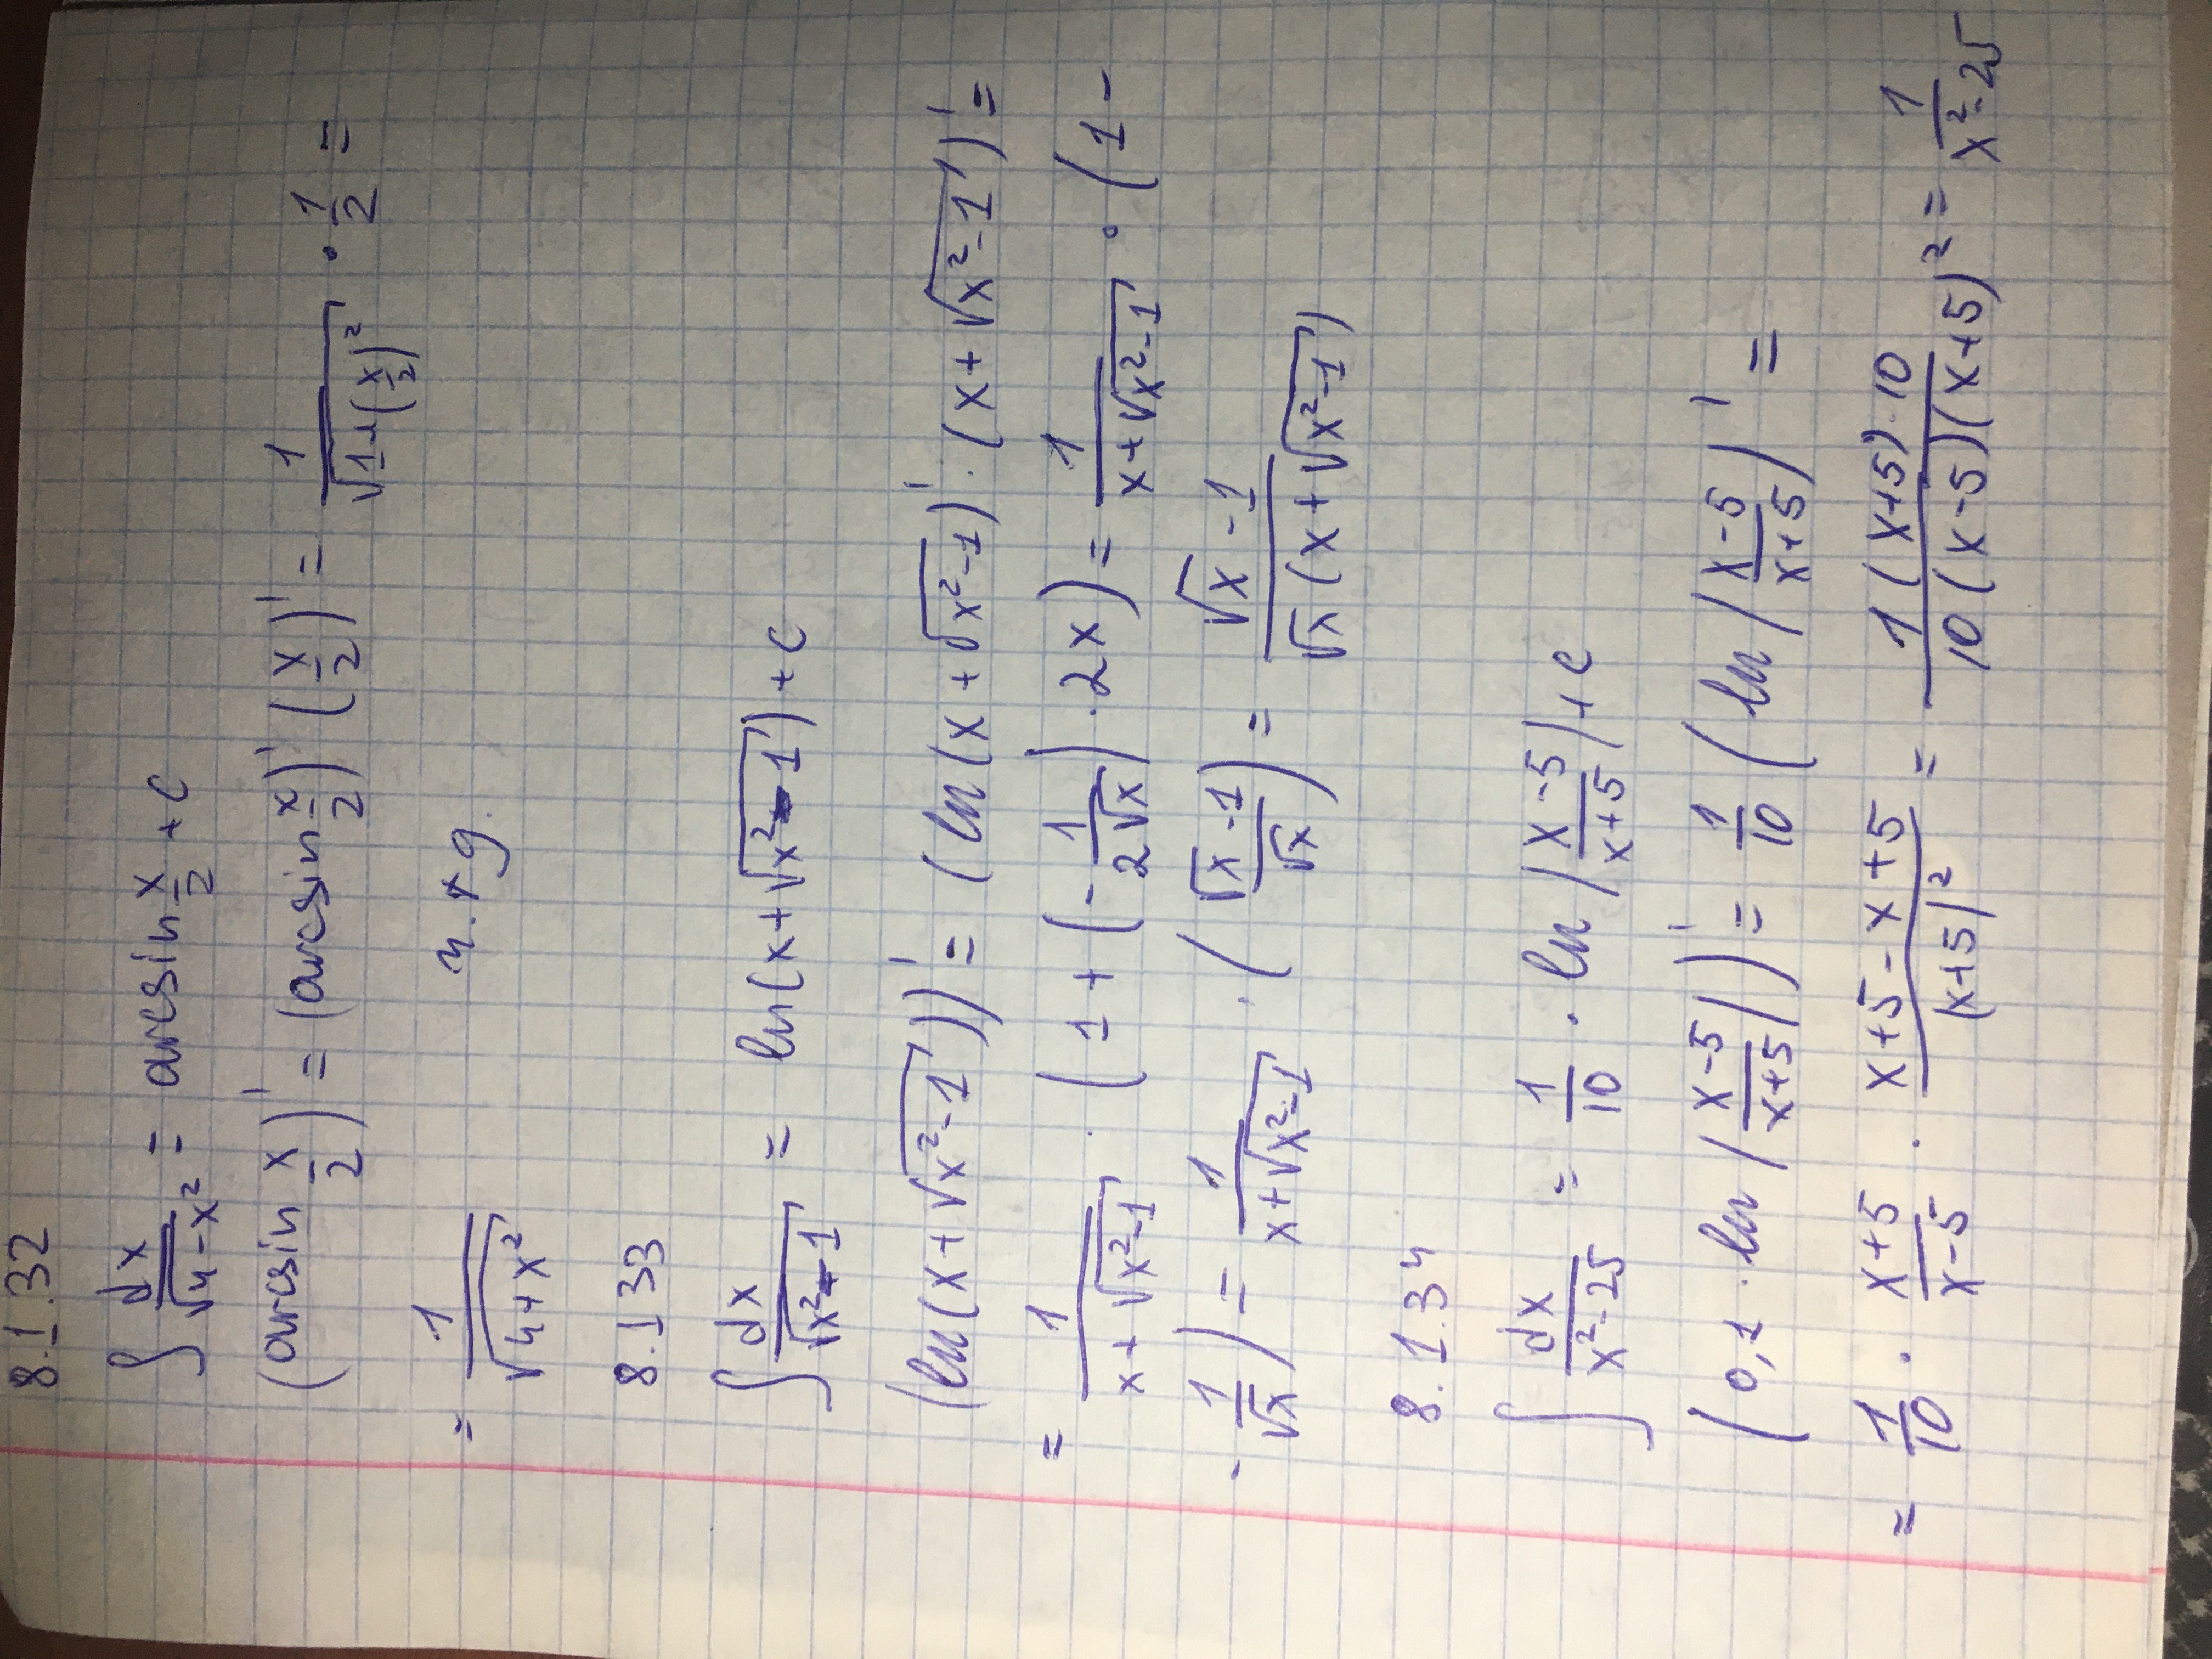 8.1.32
∫ dx/√(4-x²) = arcsin x/2 + c
(arcsin x/2)' = (arcsin x/2)' (x/2)' = 1/√(1+(x/2)²) · 1/2 =
= 1/√(4+x²) ч.т.д.
8.1 33
∫ dx/√(x²-1) = ln(x+√(x²-1)) + c
(ln(x+√(x²-1)))' = (ln(x+√(x²-1))' · (x+√(x²-1))' =
= 1/(x+√(x²-1)) · (1+(-1/(2√x)) · 2x) = 1/(x+√(x²-1)) · (1-
- 1/√x) = 1/(x+√(x²-1)) · ((√x-1)/√x) = (√x-1)/(√x(x+√(x²-1)))
8.1.34
∫ dx/(x²-25) = 1/10 · ln|(x-5)/(x+5)| + c
(0,1 · ln|(x-5)/(x+5)|)' = 1/10 (ln|(x-5)/(x+5))' =
= 1/10 · (x+5)/(x-5) · (x+5-x+5)/(x+5)² = 1(x+5)·10/(10(x-5)(x+5)²) = 1/(x²-25)